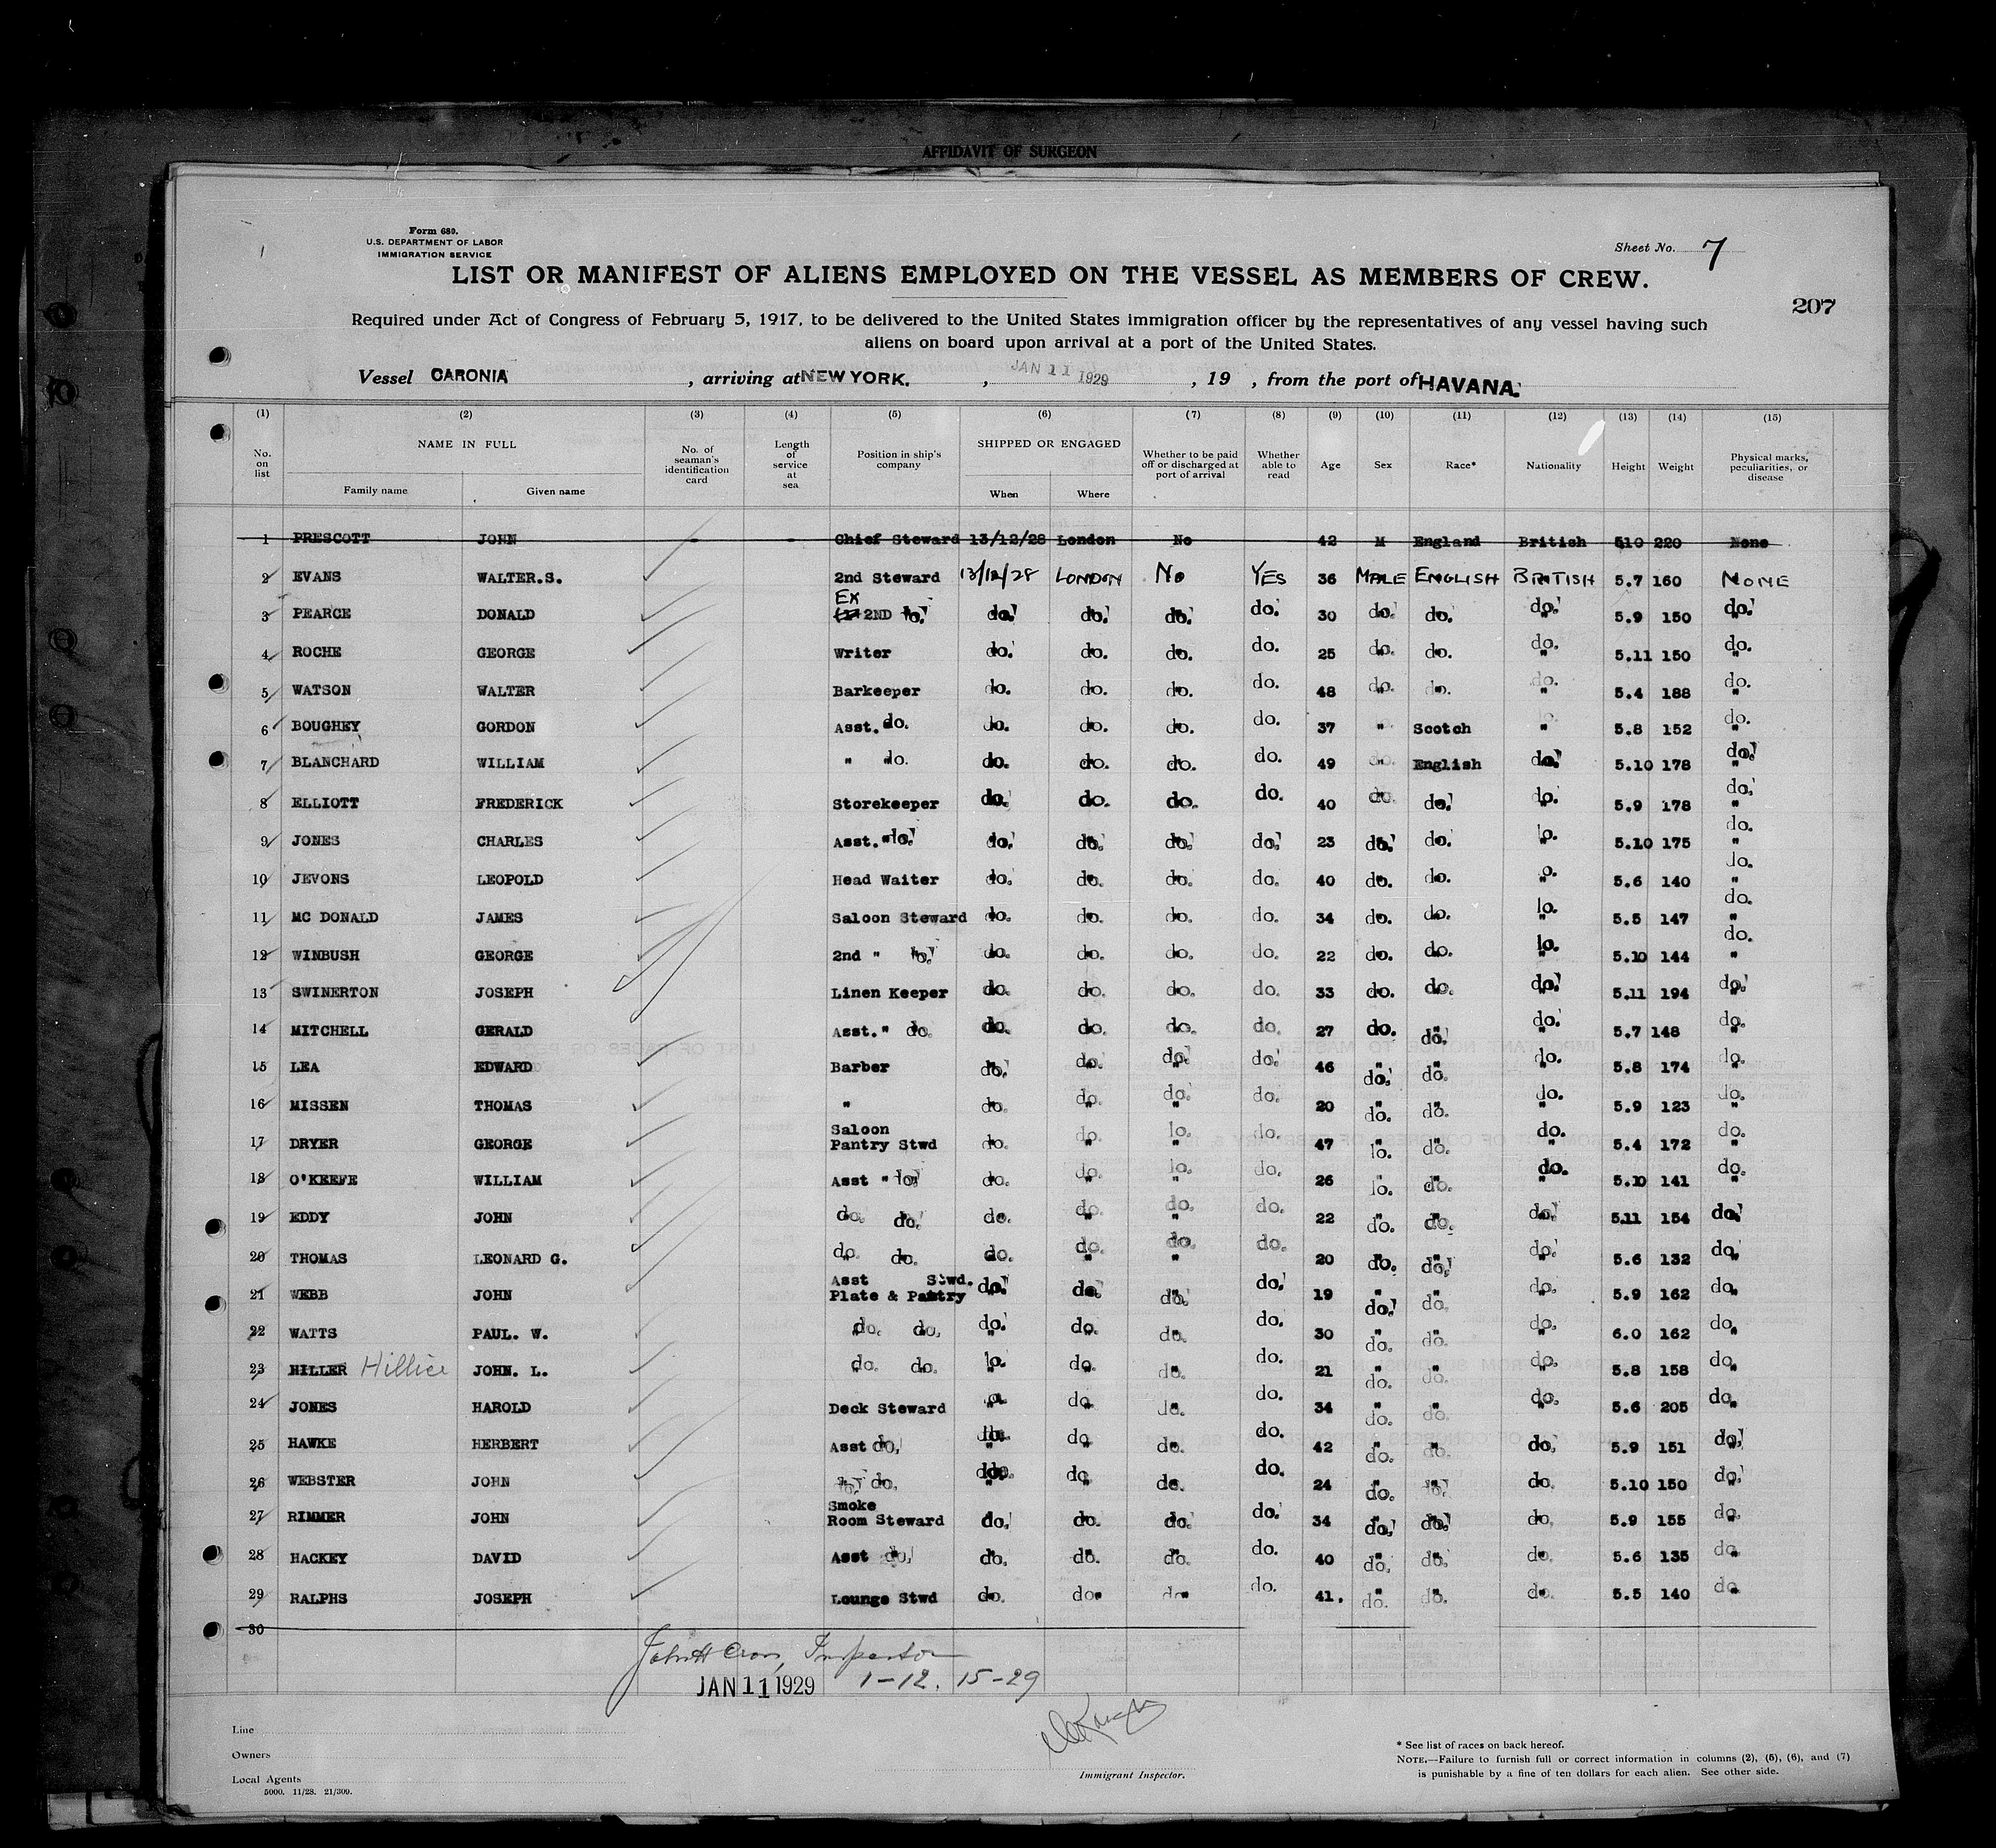 AFFIDAVIT OF SURGEON
Form 680.
U.S. DEPARTMENT OF LABOR
IMMIGRATION SERVICE
Sheet No. 7
LIST OR MANIFEST OF ALIENS EMPLOYED ON THE VESSEL AS MEMBERS OF CREW.
207
Required under Act of Congress of February 5, 1917, to be delivered to the United States immigration officer by the representatives of any vessel having such
aliens on board upon arrival at a port of the United States.
Vessel CARONIA, arriving at NEW YORK. , JAN 11 1929 , 19 , from the port of HAVANA.
(1) (2) (3) (4) (5) (6) (7) (8) (9) (10) (11) (12) (13) (14) (15)
No. on list NAME IN FULL Family name Given name No. of seaman's identification card Length of service at sea Position in ship's company SHIPPED OR ENGAGED When Where Whether to be paid off or discharged at port of arrival Whether able to read Age Sex Race* Nationality Height Weight Physical marks, peculiarities, or disease
1 PRESCOTT JOHN - - Chief Steward 13/12/28 London No 42 M England British 510 220 None
2 EVANS WALTER.S. 2nd Steward 13/12/28 LONDON No YES 36 MALE ENGLISH BRITISH 5.7 160 NONE
3 PEARCE DONALD Ex 2ND do. do. do. do. do. 30 do. do. do. 5.9 150 do.
4 ROCHE GEORGE Writer do. do. do. do. 25 do. do. do. 5.11 150 do.
5 WATSON WALTER Barkeeper do. do. do. do. 48 do. do. do. 5.4 188 do.
6 BOUGHEY GORDON Asst. do. do. do. do. do. 37 " Scotch " 5.8 152 do.
7 BLANCHARD WILLIAM " do. do. do. do. do. 49 do. English do. 5.10 178 do.
8 ELLIOTT FREDERICK Storekeeper do. do. do. do. 40 do. do. do. 5.9 178 do.
9 JONES CHARLES Asst. " do. do. do. do. do. 23 do. do. do. 5.10 175 do.
10 JEVONS LEOPOLD Head Waiter do. do. do. do. 40 do. do. do. 5.6 140 do.
11 MC DONALD JAMES Saloon Steward do. do. do. do. 34 do. do. do. 5.5 147 do.
12 WINBUSH GEORGE 2nd " do. do. do. do. do. 22 do. do. do. 5.10 144 do.
13 SWINERTON JOSEPH Linen Keeper do. do. do. do. 33 do. do. do. 5.11 194 do.
14 MITCHELL GERALD Asst. " do. do. do. do. do. 27 do. do. do. 5.7 148 do.
15 LEA EDWARD Barber do. do. do. do. 46 do. do. do. 5.8 174 do.
16 MISSEN THOMAS " do. do. do. do. 20 do. do. do. 5.9 123 do.
17 DRYER GEORGE Saloon Pantry Stwd do. do. do. do. 47 do. do. do. 5.4 172 do.
18 O'KEEFE WILLIAM Asst " do. do. do. do. do. 26 do. do. do. 5.10 141 do.
19 EDDY JOHN do. do. do. do. do. do. 22 do. do. do. 5.11 154 do.
20 THOMAS LEONARD G. do. do. do. do. do. do. 20 do. do. do. 5.6 132 do.
21 WEBB JOHN Asst Stwd. Plate & Pantry do. do. do. do. 19 do. do. do. 5.9 162 do.
22 WATTS PAUL. W. do. do. do. do. do. do. 30 do. do. do. 6.0 162 do.
23 HILLER Hillier JOHN. L. do. do. do. do. do. do. 21 do. do. do. 5.8 158 do.
24 JONES HAROLD Deck Steward do. do. do. do. 34 do. do. do. 5.6 205 do.
25 HAWKE HERBERT Asst do. do. do. do. do. 42 do. do. do. 5.9 151 do.
26 WEBSTER JOHN do. do. do. do. do. do. 24 do. do. do. 5.10 150 do.
27 RIMMER JOHN Smoke Room Steward do. do. do. do. 34 do. do. do. 5.9 155 do.
28 HACKEY DAVID Asst do. do. do. do. do. 40 do. do. do. 5.6 135 do.
29 RALPHS JOSEPH Lounge Stwd do. do. do. do. 41. do. do. do. 5.5 140 do.
30
Inspector
JAN 11 1929 1-12. 15-29
Line
Owners
Local Agents
5000. 11/28. 21/300.
Immigrant Inspector.
* See list of races on back hereof.
NOTE.—Failure to furnish full or correct information in columns (2), (5), (6), and (7)
is punishable by a fine of ten dollars for each alien. See other side.